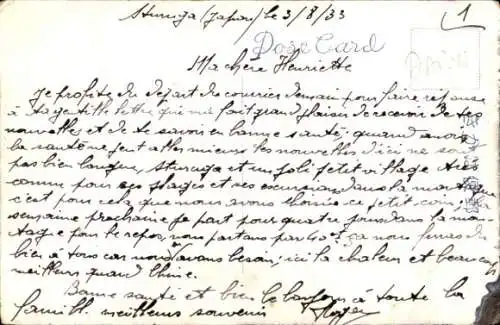 Sturuga (Japon) le 3/8/33
1
Dose Card
Ma chère Henriette
Je profite du départ du courrier demain pour faire réponse
à ta gentille lettre qui me fait grand plaisir de recevoir de tes
nouvelles et de te savoir en bonne santé, quand à moi
la santé ne peut aller mieux les nouvelles d'ici ne sont
pas bien longues, Sturuga et un joli petit village très
connu pour ses plages et ses excursions dans la montagne
c'est pour cela que nous avons choisis ce petit coin. La
semaine prochaine je part pour quatre jours dans la mon
tagne pour le repos, nous partons par 40 ça nous feras du
bien à tous car nous avons besoin, ici la chaleur et beaucoup
meilleurs quand Chine.
Bonne santé et bien le bonjour à toute la
famille meilleurs souvenir